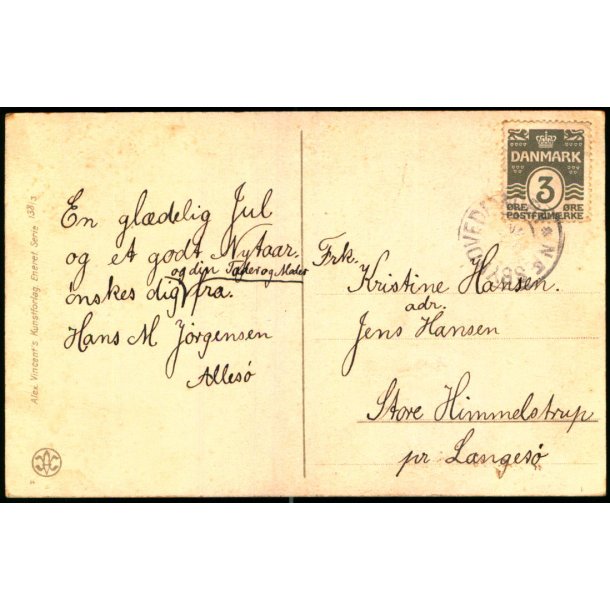 Alex. Vincent's Kunstforlag. Eneret. Serie 138/3
En glædelig Jul
og et godt Nytaar.
og din Fader og Moder
önskes dig fra.
Hans M Jörgensen
Allesö
DANMARK
3
ØRE ØRE
POSTFRIMÆRKE
Frk.
Kristine Hansen.
adr.
Jens Hansen
Store Himmelstrup
pr Langesö